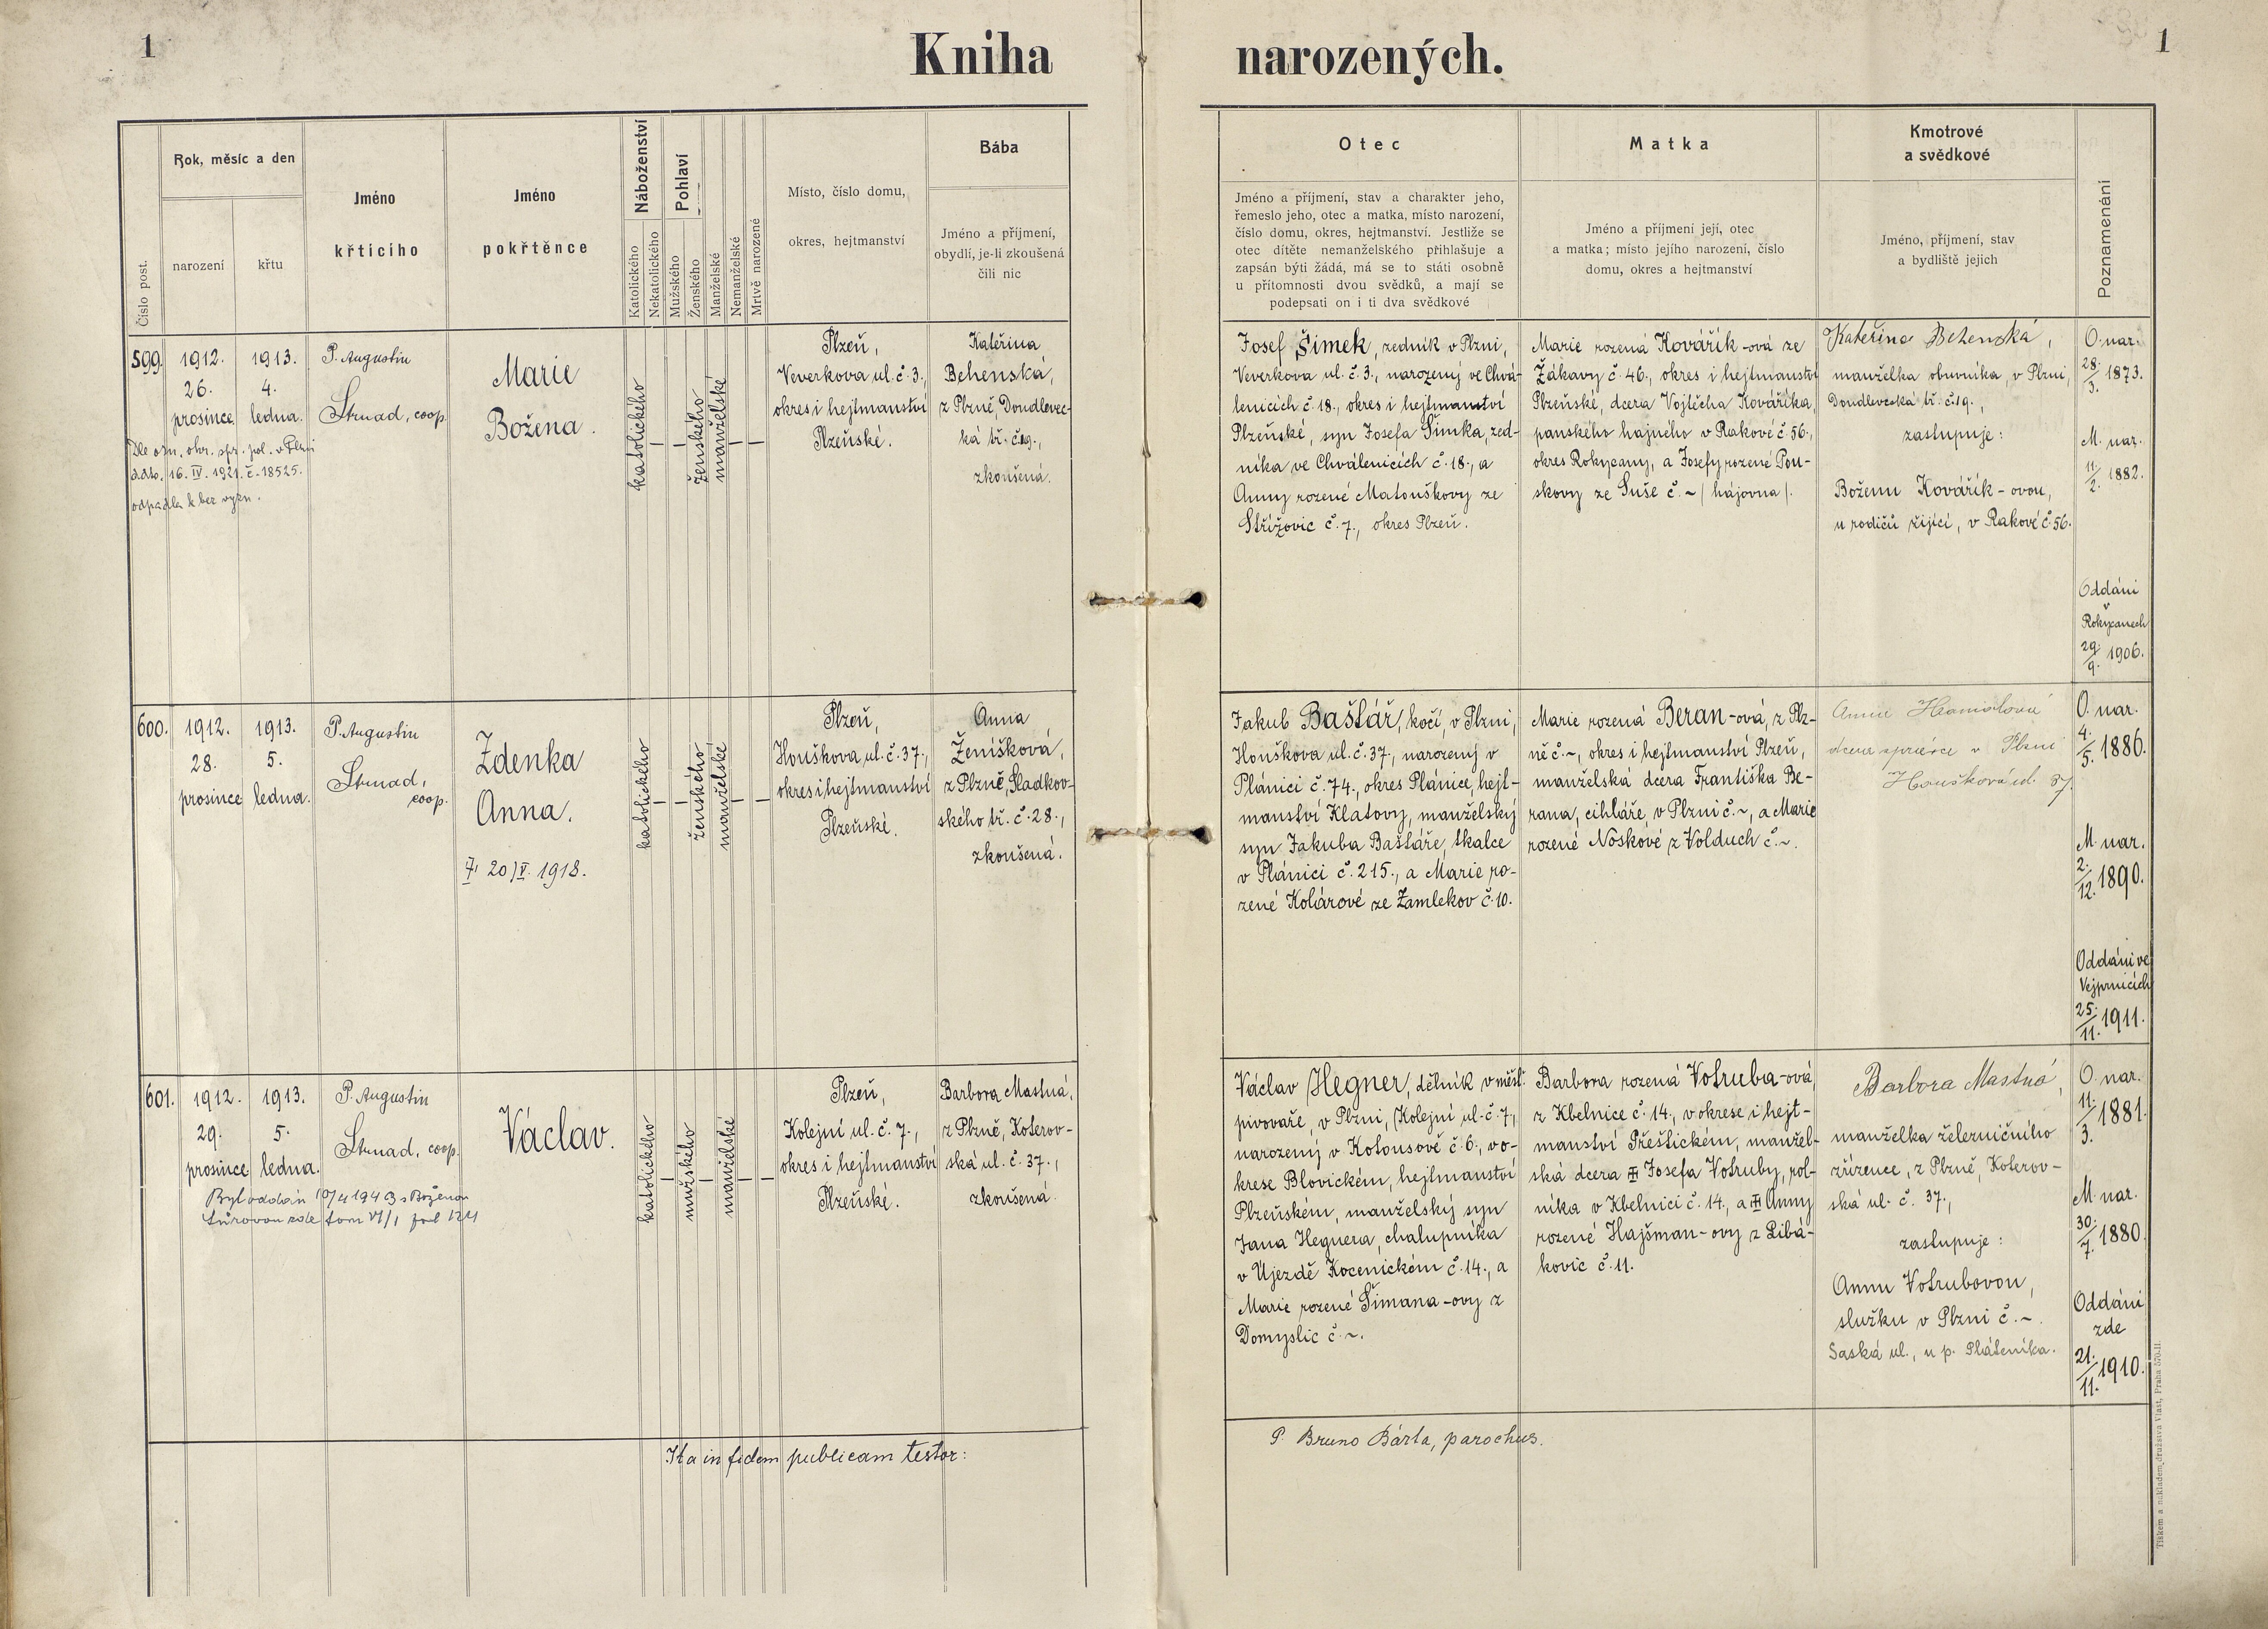 1
Kniha narozených.
1
Číslo post.
Rok, měsíc a den
narození
křtu
Jméno
křtícího
Jméno
pokřtěnce
Náboženství
Katolického
Nekatolického
Pohlaví
Mužského
Ženského
Manželské
Nemanželské
Mrtvě narozené
Místo, číslo domu,
okres, hejtmanství
Bába
Jméno a příjmení,
obydlí, je-li zkoušená
čili nic
Otec
Jméno a příjmení, stav a charakter jeho,
řemeslo jeho, otec a matka, místo narození,
číslo domu, okres, hejtmanství. Jestliže se
otec dítěte nemanželského přihlašuje a
zapsán býti žádá, má se to státi osobně
u přítomnosti dvou svědků, a mají se
podepsati on i ti dva svědkové
Matka
Jméno a příjmení její, otec
a matka; místo jejího narození, číslo
domu, okres a hejtmanství
Kmotrové
a svědkové
Jméno, příjmení, stav
a bydliště jejich
Poznamenání
599.
1912.
26.
prosince
1913.
4.
ledna.
Dle ozn. okr. spr. pol. v Plzni
ddto. 16. IV. 1921. č. 18525.
odpadla k bez vyzn.
P. Augustin
Strnad, coop.
Marie
Božena.
katolického
ženského
manželské
Plzeň,
Veverkova ul. č. 3.,
okres i hejtmanství
Plzeňské.
Kateřina
Behenská,
z Plzně, Doudlevec-
ká tř. č. 19.,
zkoušená.
Josef Šimek, zedník v Plzni,
Veverkova ul. č. 3., narozený ve Chvá-
lenicích č. 18., okres i hejtmanství
Plzeňské, syn Josefa Šimka, zed-
níka ve Chválenicích č. 18., a
Anny rozené Matouškovy ze
Střížovic č. 7., okres Plzeň.
Marie rozená Kovářík-ová ze
Žákavy č. 46., okres i hejtmanství
Plzeňské, dcera Vojtěcha Kováříka,
panského hajného v Rakové č. 56.,
okres Rokycany, a Josefy rozené Pou-
skovy ze Suše č. ~ / hájovna /.
Kateřina Behenská,
manželka obuvníka, v Plzni,
Doudlevecká tř. č. 19.,
zastupuje:
Boženu Kovářík-ovou,
u rodičů žijící, v Rakové č. 56.
O. nar.
28./3. 1873.
M. nar.
11./2. 1882.
Oddáni
v
Rokycanech
29./9. 1906.
600.
1912.
28.
prosince
1913.
5.
ledna.
P. Augustin
Strnad,
coop.
Zdenka
Anna.
20/V. 1918.
katolického
ženského
manželské
Plzeň,
Houškova ul. č. 37.,
okres i hejtmanství
Plzeňské.
Anna
Ženíšková,
z Plzně, Sladkov-
ského tř. č. 28.,
zkoušená.
Jakub Baštář, kočí, v Plzni,
Houškova ul. č. 37, narozený v
Plánici č. 74., okres Plánice, hejt-
manství Klatovy, manželský
syn Jakuba Baštáře, tkalce
v Plánici č. 215., a Marie ro-
zené Kolárové ze Zamlekov č. 10.
Marie rozená Beran-ová, z Plz-
ně č. ~, okres i hejtmanství Plzeň,
manželská dcera Františka Be-
rana, cihláře, v Plzni č. ~, a Marie
rozené Noskové z Volduch č. ~.
Anna
dcera správce v Plzni
Houškova ul. 37.
O. nar.
4./5. 1886.
M. nar.
2./12. 1890.
Oddáni ve
Vejprnicích
25./11. 1911.
601.
1912.
29.
prosince
1913.
5.
ledna.
Byl oddán 10/4 1943 s Boženou
Tůrovou zde tom VI/1 fol 124
P. Augustin
Strnad, coop.
Václav.
katolického
mužského
manželské
Plzeň,
Kolejní ul. č. 7.,
okres i hejtmanství
Plzeňské.
Barbora Mastná,
z Plzně, Koterov-
ská ul. č. 37.,
zkoušená.
Václav Hegner, dělník v měšť.
pivovaře, v Plzni, Kolejní ul. č. 7,
narozený v Kotousově č. 6., vo-
krese Blovickém, hejtmanství
Plzeňském, manželský syn
Jana Hegnera, chalupníka
v Újezdě Kocenickém č. 14., a
Marie rozené Šimana-ovy z
Domyslic č. ~.
Barbora rozená Votruba-ová,
z Kbelnice č. 14., v okrese i hejt-
manství Přeštickém, manžel-
ská dcera Josefa Votruby, rol-
níka v Kbelnici č. 14., a Anny
rozené Hajšman-ovy z Libá-
kovic č. 11.
Barbora Mastná,
manželka železničního
zřízence, z Plzně, Koterov-
ská ul. č. 37,
zastupuje:
Annu Votrubovou,
služku v Plzni č. ~.
Saská ul., u p. Pláteníka.
O. nar.
11./3. 1881.
M. nar.
30./7. 1880.
Oddáni
zde
21./11. 1910.
Ita in fidem publicam testor:
P. Bruno Bárta, parochus.
Tiskem a nákladem družstva Vlast, Praha 570-II.